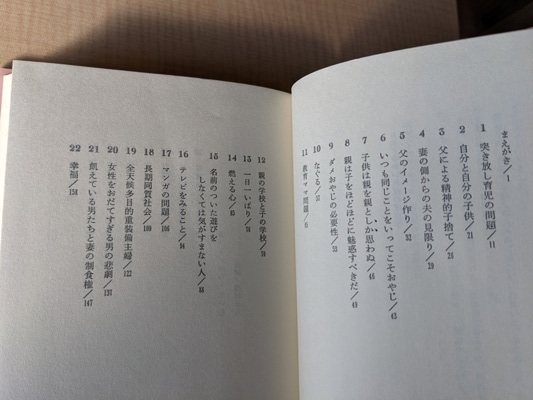 まえがき／1
1 突き放し育児の問題／11
2 自分と自分の子供／21
3 父による精神的子捨て／24
4 妻の側からの夫の見限り／29
5 父のイメージ作り／32
6 いつも同じことをいってこそおやじ／43
7 子供は親を親としか思わぬ／46
8 親は子をほどほどに魅惑すべきだ／49
9 ダメおやじの必要性／53
10 なぐる／57
11 教育ママ問題
12 親の学校と子の学校
13 一日一いばり
14 燃える心
15 名前のついた遊びを
しなくては気がすまない人／88
16 テレビをみること／94
17 マンガの問題／100
18 長期同質社会／109
19 全天候多目的重装備主婦／122
20 女性をおだてすぎる男の悲劇／137
21 飢えている男たちと妻の制食権／147
22 幸福／158